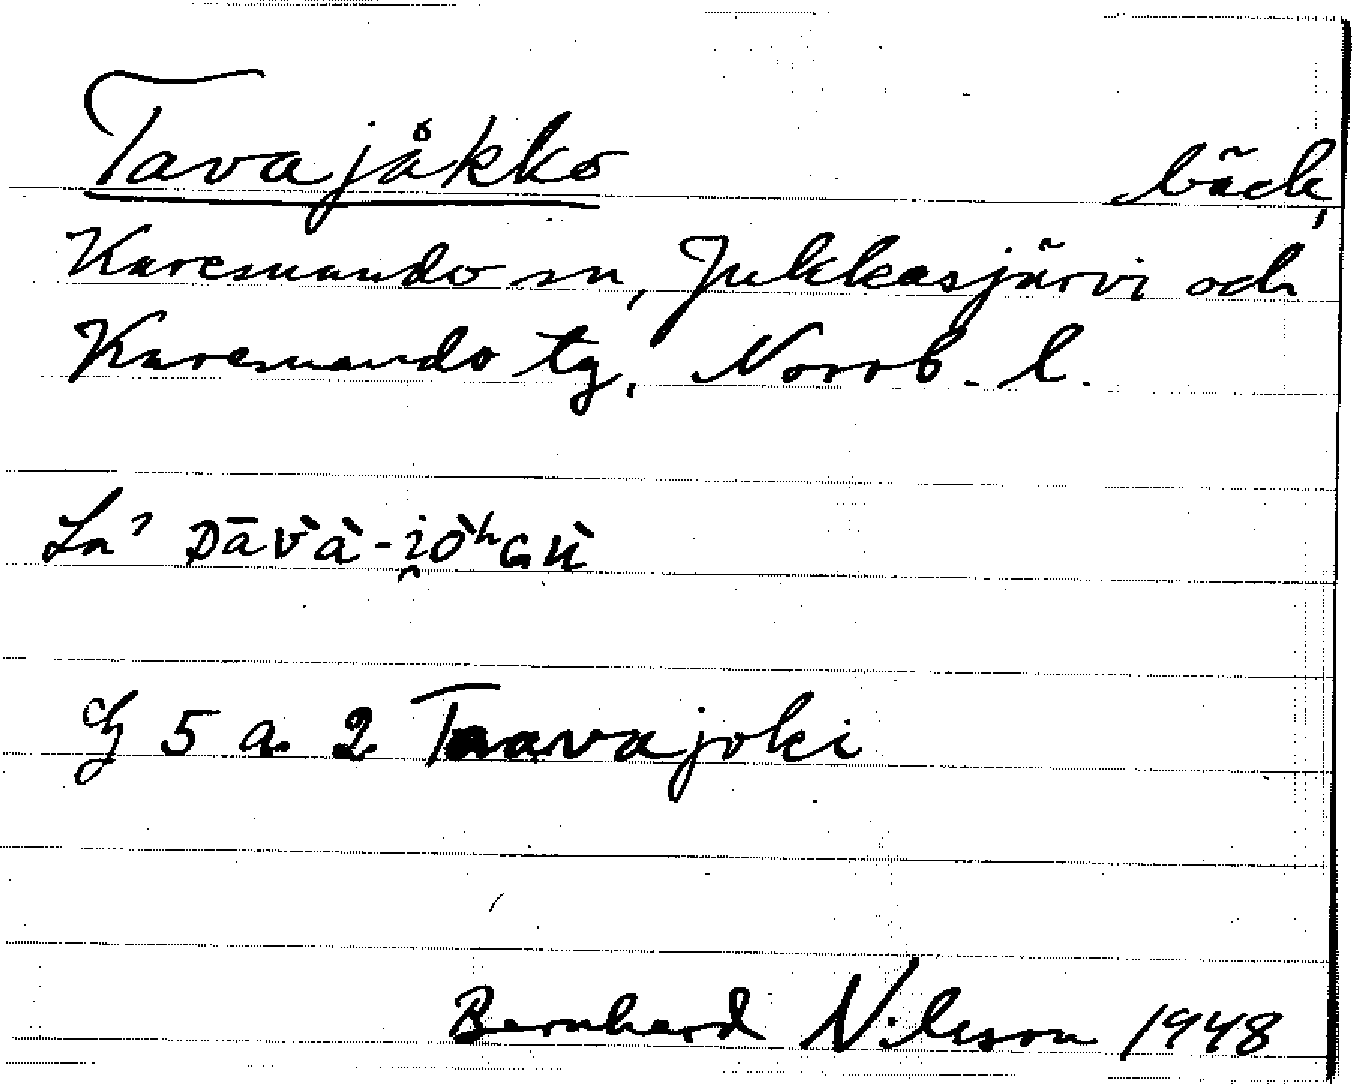 Tavajåkko bäck,
Karesuando sn, Jukkasjärvi och
Karesuando tg, Norrb. l.
Ln' D̄āv̀à-i̯òʰGù
Gg 5 a. 2 Taavajoki
Bernhard Nilsson 1948